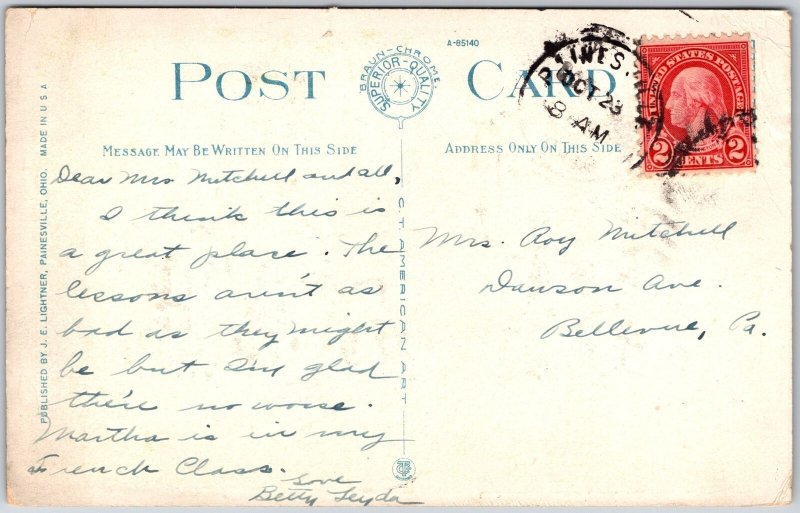 A-85140
POST CARD
BRAUN-CHROME
SUPERIOR-QUALITY
MESSAGE MAY BE WRITTEN ON THIS SIDE
ADDRESS ONLY ON THIS SIDE
PUBLISHED BY J. E. LIGHTNER, PAINESVILLE, OHIO. MADE IN U S A
C. T. AMERICAN ART
OCT 23
8 AM
UNITED STATES POSTAGE
2 CENTS 2
Dear Mrs Mitchell and all,
I think this is
a great place. The
lessons aren't as
bad as they might
be but I'm glad
there no worse.
Martha is in my
French Class.
Love
Betty Leyda
Mrs. Roy Mitchell
Dawson Ave.
Bellevue, Pa.